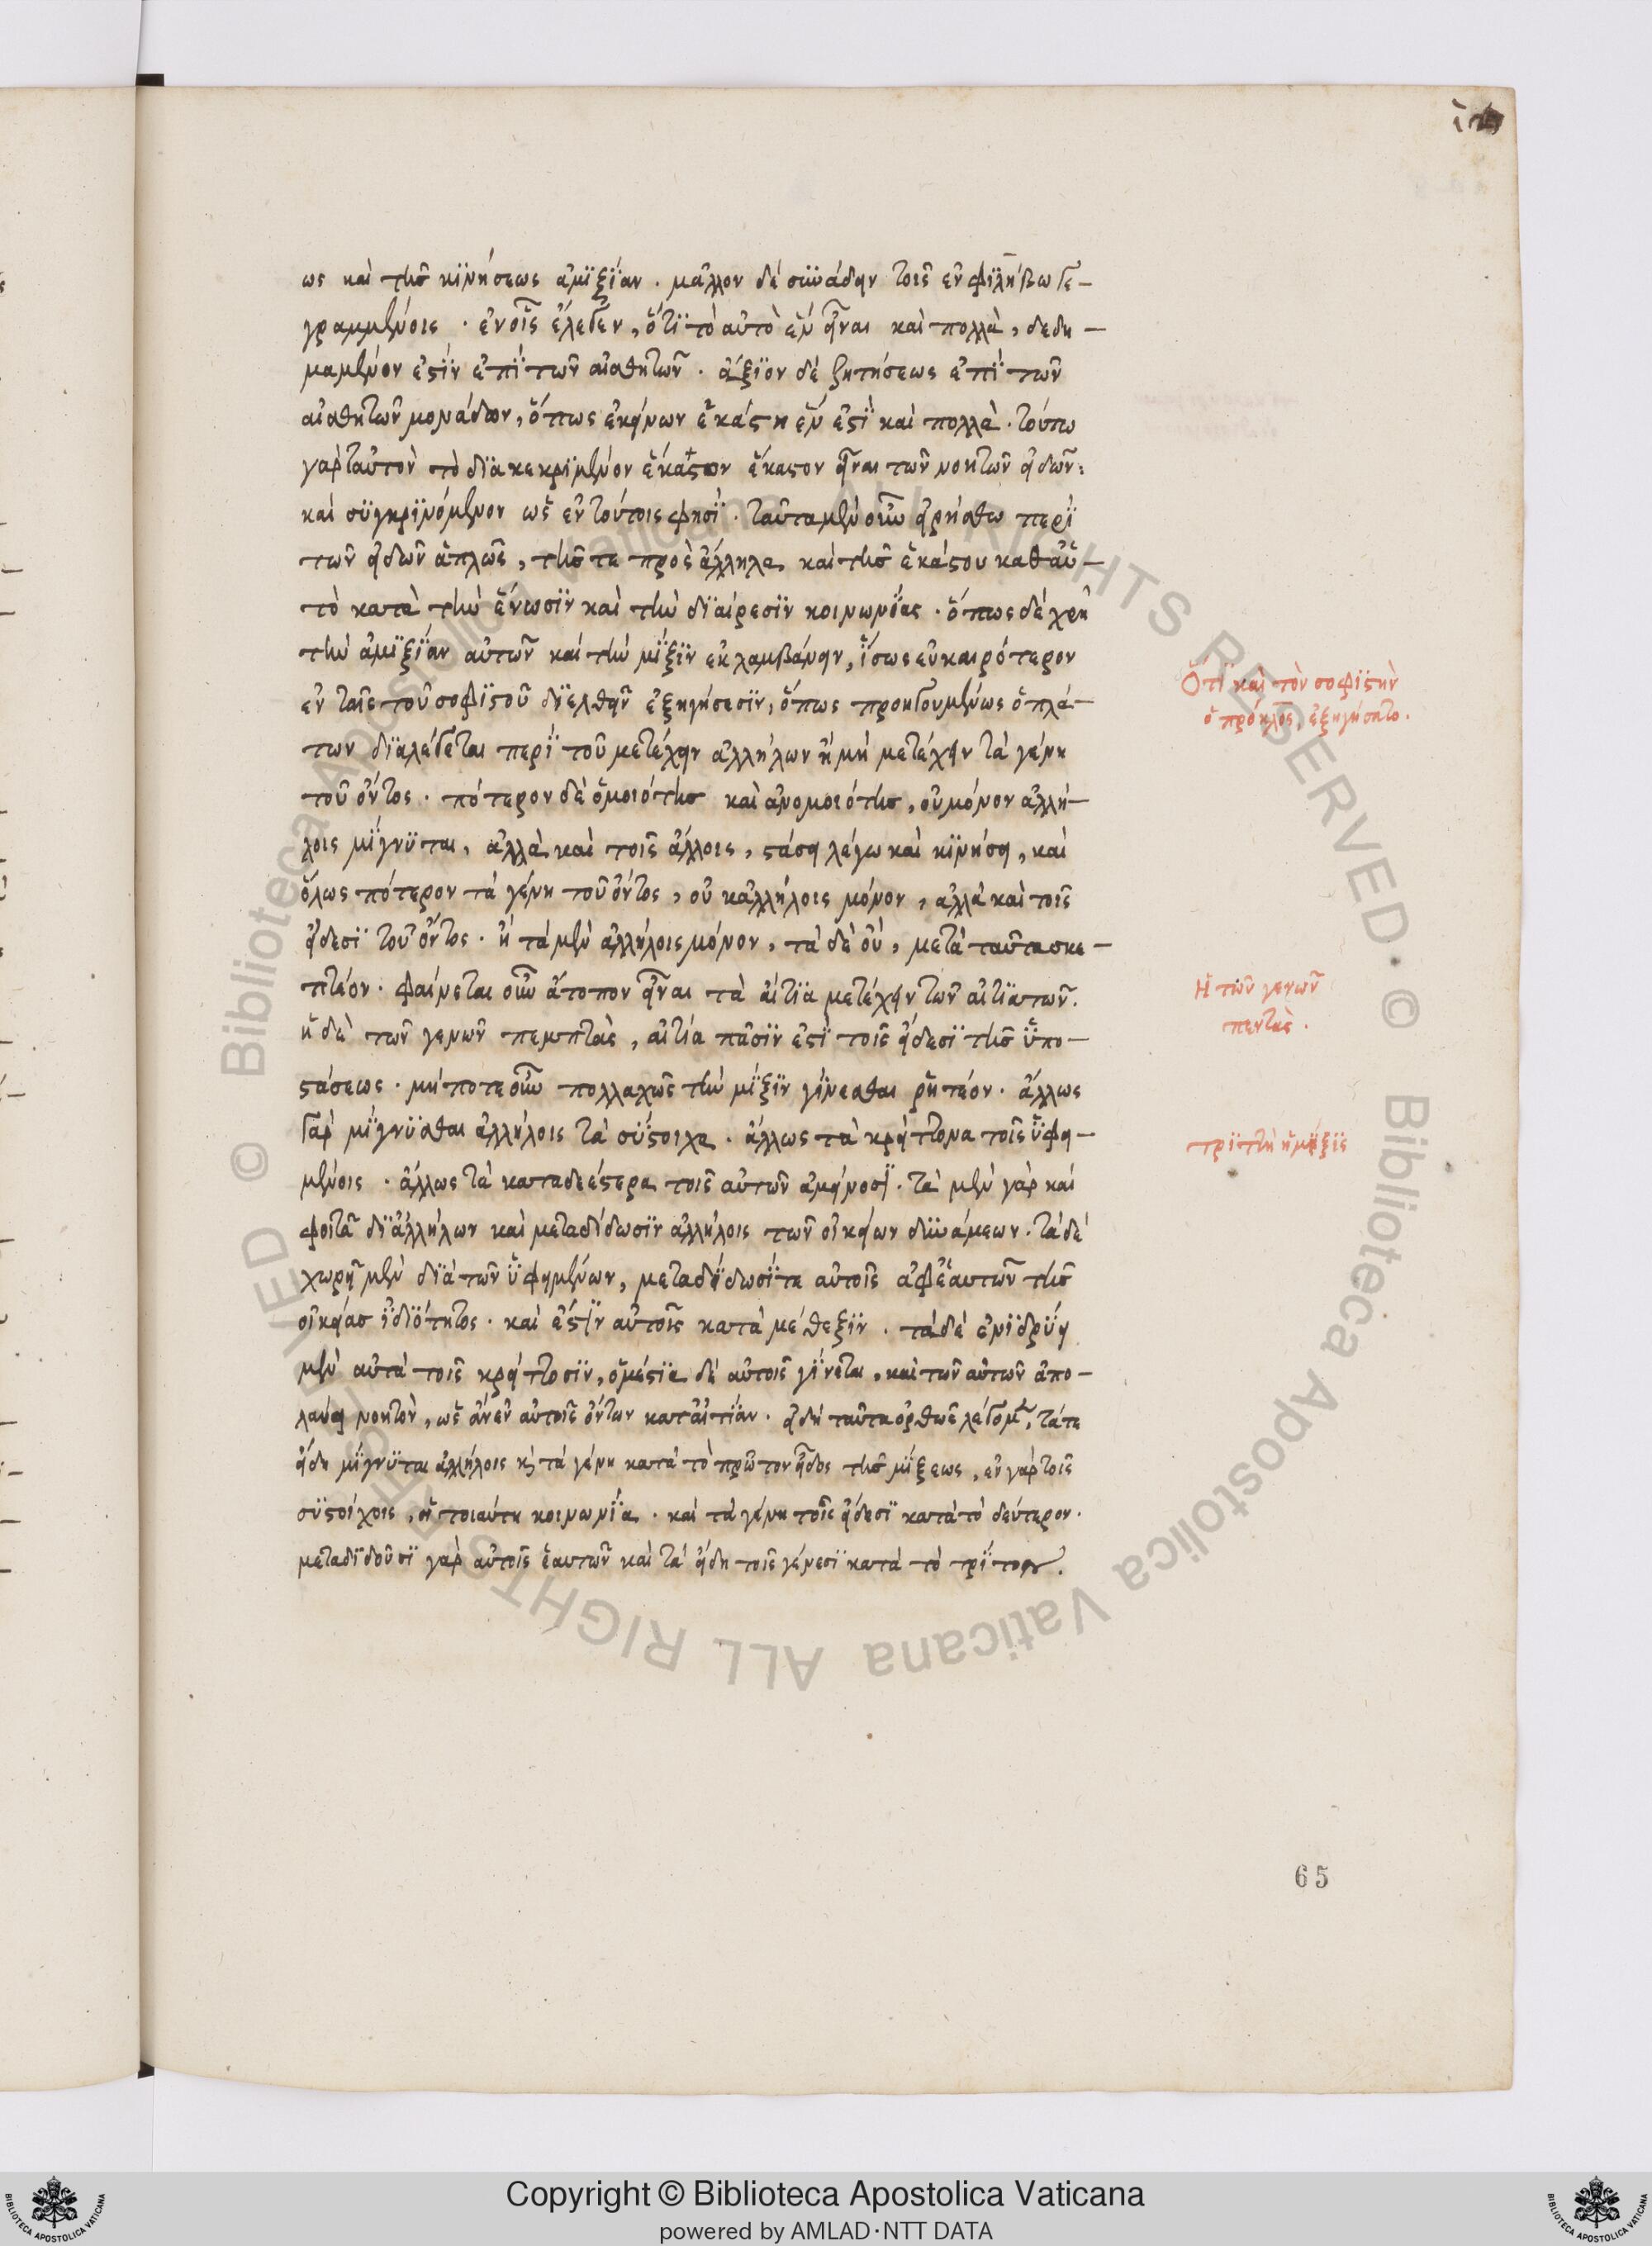 ως καὶ τῆς κϊνήσεως ἀμϊξΐαν · μᾶλλον δὲ συνάδειν τοῖς ἐν φϊλήβω γε–
γραμμένοις · ἐν οἷς ἔλεγεν, ὅτϊ τὸ αὐτὸ ἓν εἶναι καὶ πολλὰ, δεδη –
μαμένον ἐστϊν ἐπϊ τῶν αἰσθητῶν · ἄξϊον δὲ ζητήσεως ἐπϊ τῶν
αἰσθητῶν μονάδων, ὅπως ἐκείνων ἑκάστη ἕν ἐστϊ καὶ πολλὰ · τούτω
γὰρ ταὐτὸν τὸ δϊακεκρϊμένον ἕκαστον ἕκαστον εἶναι τῶν νοητῶν εἰδῶν:
καὶ συγκρϊνόμενον ὡς ἐν τούτοις φησϊ · ταῦτα μὲν οὖν εἰρήσθω περϊ
τῶν εἰδῶν ἁπλῶς, τῆς τε πρὸς ἄλληλα καὶ τῆς ἑκάστου καθ αὑ –
τὸ κατὰ τὴν ἕνωσϊν καὶ τὴν δϊαίρεσϊν κοινωνΐας · ὅπως δὲ χρὴ
τὴν ἀμϊξΐαν αὐτῶν καὶ τὴν μΐξϊν ἐκλαμβάνειν, ἴσως εὐκαιρότερον
ἐν ταῖς τοῦ σοφϊστοῦ δϊελθεῖν ἐξηγήσεσϊν, ὅπως προηγουμένως ὁ πλά–
των δϊαλέγεται περϊ τοῦ μετέχειν ἀλλήλων ἢ μὴ μετέχειν τὰ γένη
τοῦ ὄντος · πότερον δὲ ὁμοιότης καὶ ἀνομοιότης, οὐ μόνον ἀλλή–
λοις μΐγνϋται, ἀλλὰ καὶ τοῖς ἄλλοις, στάσει λέγω καὶ κϊνήσει, καὶ
ὅλως πότερον τὰ γένη τοῦ ὄντος, οὐκ ἀλλήλοις μόνον, ἀλλὰ καὶ τοῖς
εἴδεσϊ τοῦ ὄντος · ἢ τὰ μὲν ἀλλήλοις μόνον, τὰ δὲ οὔ, μετὰ ταῦτα σκε –
πτέον · φαίνεται οὖν ἄτοπον εἶναι τὰ αἴτϊα μετέχειν τῶν αἰτϊατῶν.
ἡ δὲ τῶν γενῶν πεμπτὰς, αἰτία πᾶσϊν ἐστϊ τοῖς εἴδεσϊ τῆς ὑπο –
στάσεως · μήποτε οὖν πολλαχῶς τὴν μΐξϊν γΐνεσθαι ῥητέον · ἄλλως
γὰρ μΐγνϋσθαι ἀλλήλοις τὰ σύστοιχα · ἄλλως τὰ κρείττονα τοῖς ὑφει –
μένοις · ἄλλως τὰ καταδεέστερα τοῖς αὐτῶν ἀμείνοσϊ · τὰ μὲν γὰρ καὶ
φοιτᾶ δϊ ἀλλήλων καὶ μεταδίδωσϊν ἀλλήλοις τῶν οἰκείων δυνάμεων · τὰ δὲ
χωρεῖ μὲν δϊὰ τῶν ὑφειμένων, μεταδΐδωσΐ τε αὐτοῖς ἀφ ἑαυτῶν τῆς
οἰκείας ἰδϊότητος · καὶ ἔστϊν αὐτοῖς κατὰ μέθεξϊν · τὰ δὲ ἐνϊδρύει
μὲν αὐτὰ τοῖς κρείττοσϊν, ὁμέστϊα δὲ αὐτοῖς γΐνεται, καὶ τῶν αὐτῶν ἀπο –
λαύει νοητὸν, ὡς ἂν ἐν αὐτοῖς ὄντων κατ αἰτΐαν · εἰ δὴ ταῦτα ὀρθῶς λέγομεν, τά τε
εἴδη μΐγνϋται ἀλλήλοις κ τὰ γένη κατὰ τὸ πρῶτον εἶδος τῆς μΐξεως, ἐν γὰρ τοῖς
συστοίχοις, ἡ τοιαύτη κοινωνΐα · καὶ τὰ γένη τοῖς εἴδεσϊ κατὰ τὸ δεύτερον ·
μεταδϊδοῦσϊ γὰρ αὐτοῖς ἑαυτῶν καὶ τὰ εἴδη τοῖς γένεσϊ κατὰ τὸ τρΐτον.
Ὅτϊ καὶ τὸν σοφϊστὴν
ὁ πρόκλος, ἐξηγήσατο.
Ἡ τῶν γενῶν
πεντὰς.
τρϊττὴ ἡ μΐξϊς
65
© Biblioteca Apostolica Vaticana ALL RIGHTS RESERVED · © Biblioteca Apostolica Vaticana ALL RIGHTS RESERVED
Copyright © Biblioteca Apostolica Vaticana
powered by AMLAD·NTT DATA
BIBLIOTECA APOSTOLICA VATICANA
BIBLIOTECA APOSTOLICA VATICANA